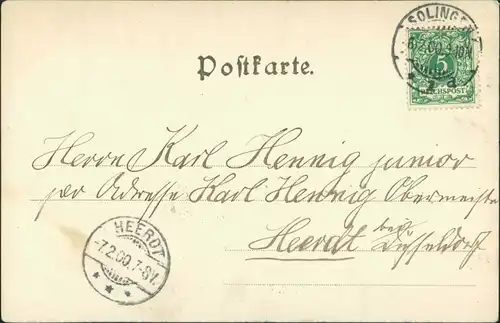 SOLINGEN
6.2.00.
* 2 a
5
REICHSPOST
Postkarte.
Herrn Karl Hennig junior
per Adresse Karl Hennig Obermeister
Heerdt bei Düsseldorf
HEERDT
-7.2.00.7-8V.
* * *